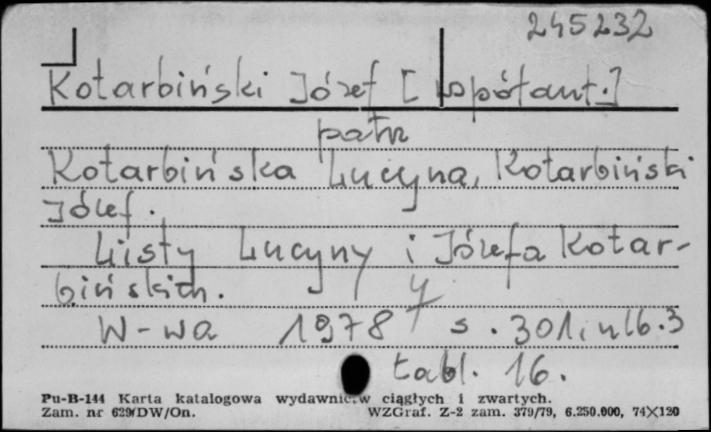 245232
Kotarbiński Józef [współaut.]
patrz
Kotarbińska Lucyna, Kotarbiński
Józef.
Listy Lucyny i Józefa Kotar-
bińskich.
W-wa 1978 s. 301, nlb. 3
tabl. 16.
Pu-B-144 Karta katalogowa wydawnictw ciągłych i zwartych.
Zam. nr 629/DW/On. WZGraf. Z-2 zam. 379/79, 6.250.000, 74×120